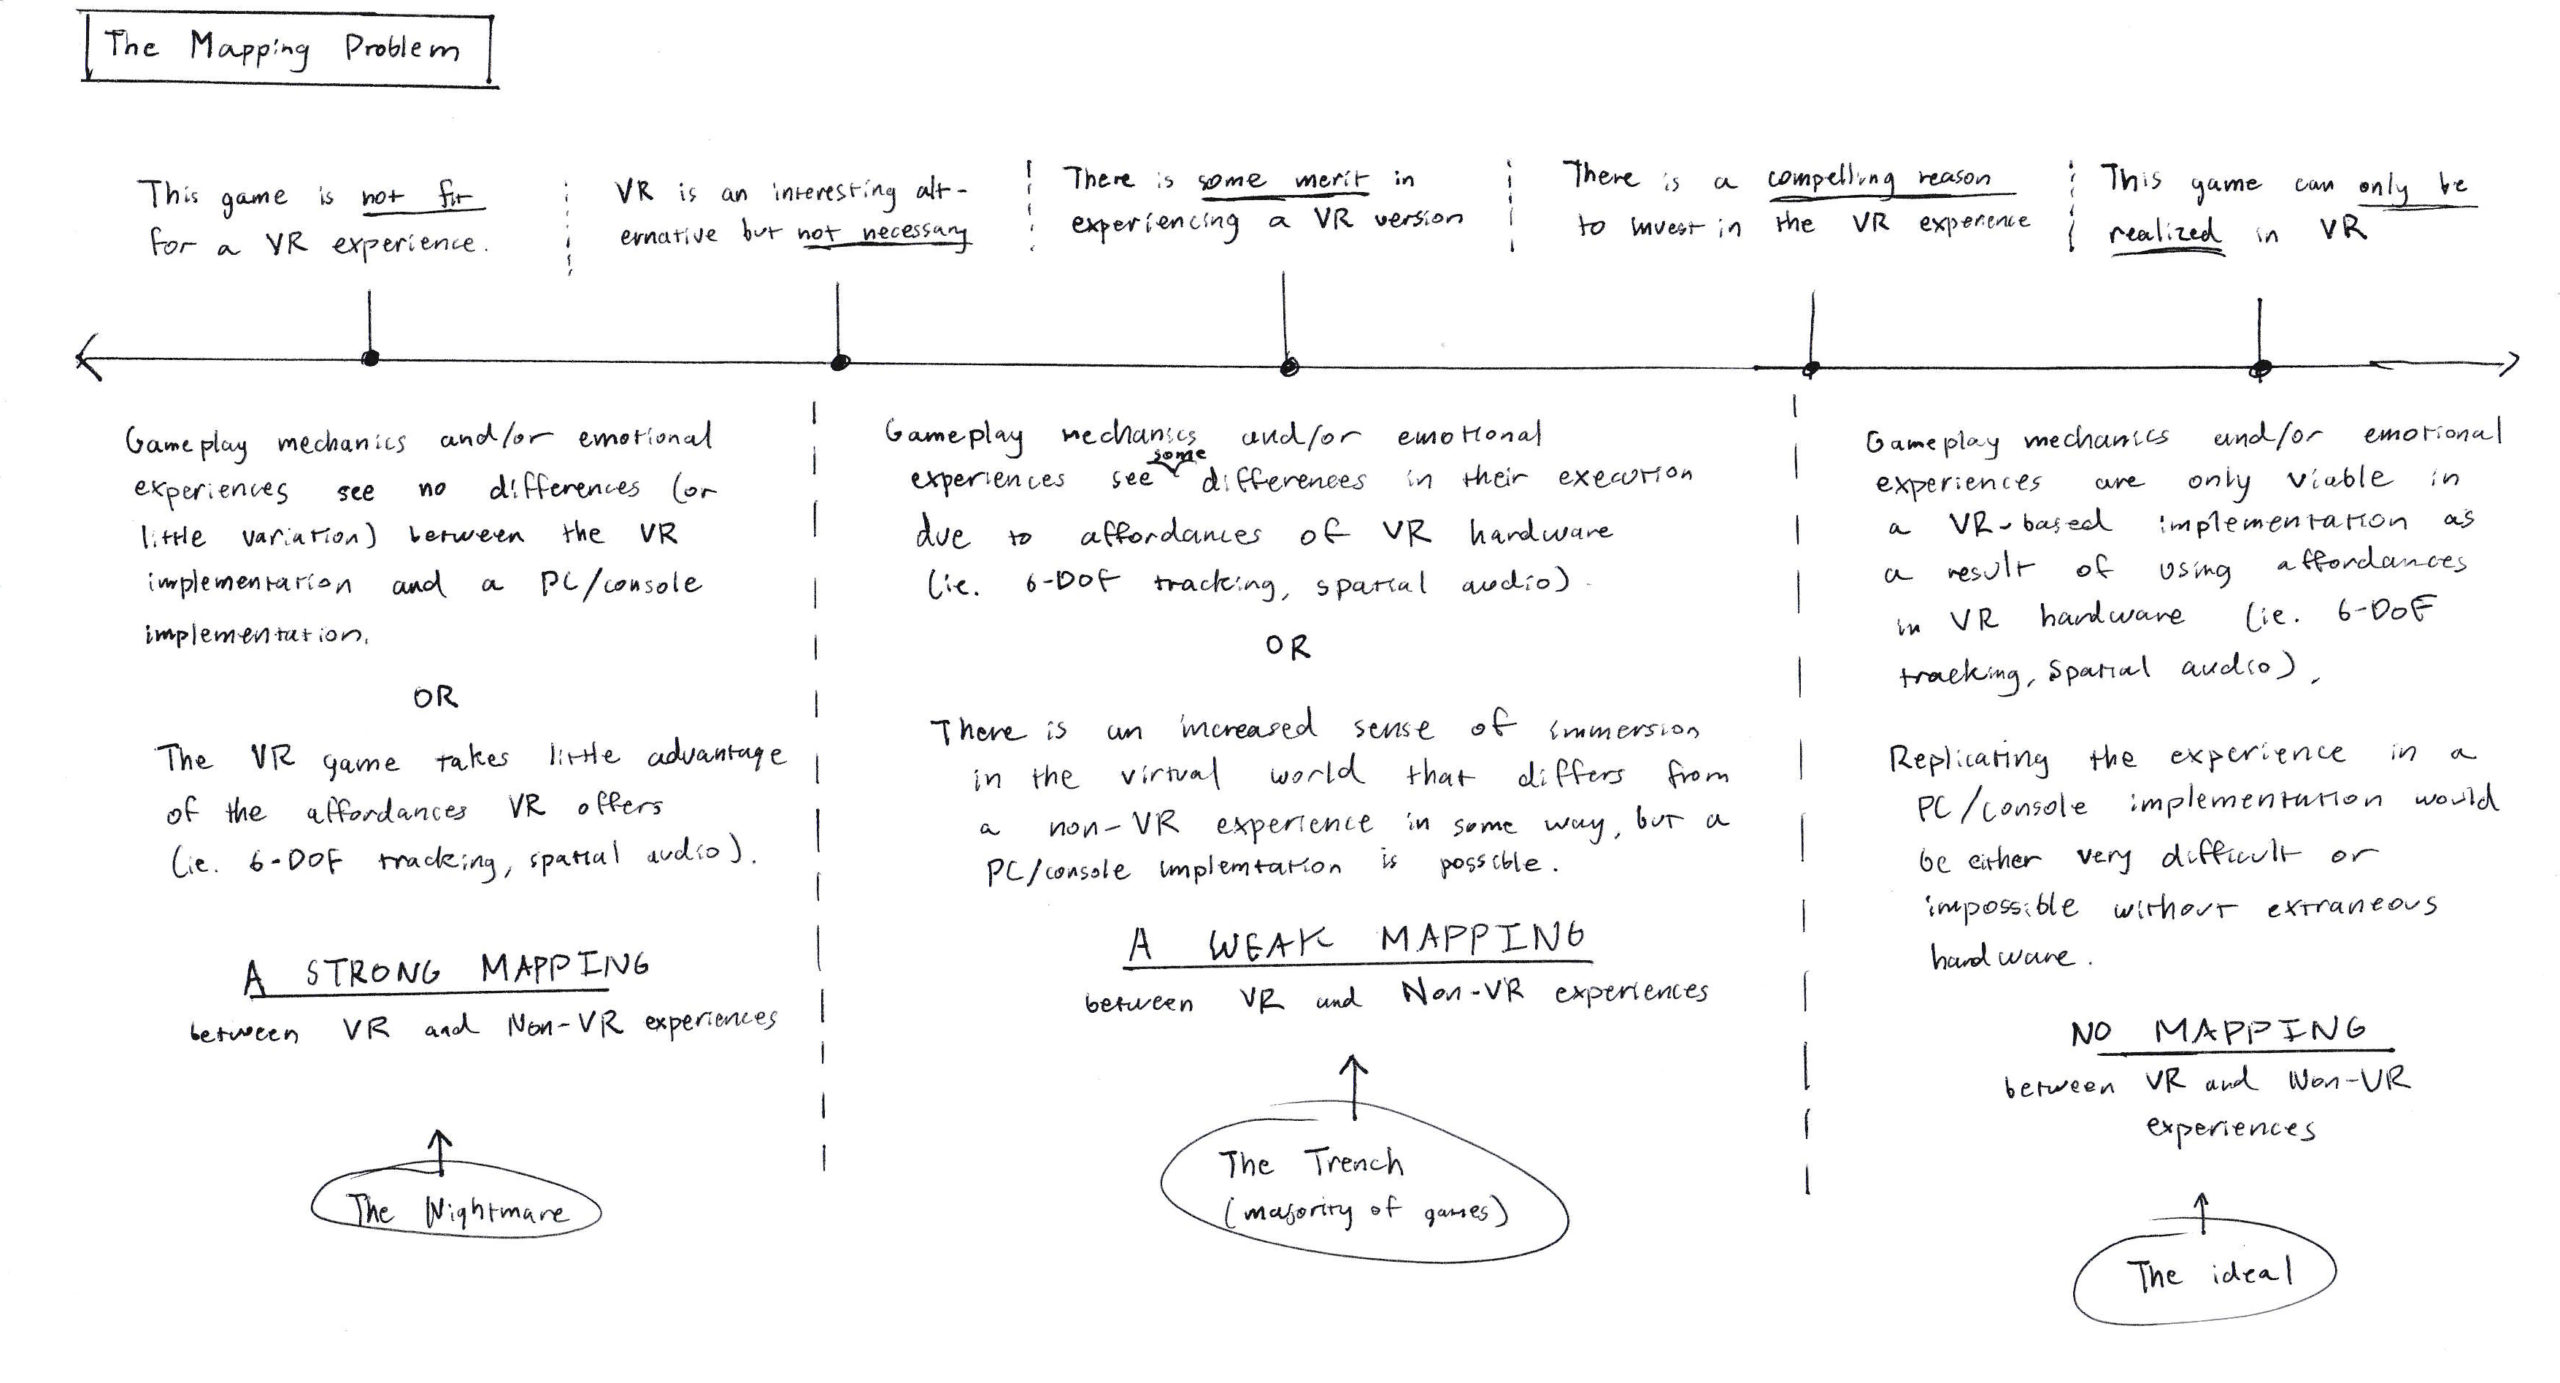 The Mapping Problem
This game is not fit
for a VR experience.
VR is an interesting alt-
ernative but not necessary
There is some merit in
experiencing a VR version
There is a compelling reason
to invest in the VR experience
This game can only be
realized in VR
Gameplay mechanics and/or emotional
experiences see no differences (or
little variation) between the VR
implementation and a PC/console
implementation.
OR
The VR game takes little advantage
of the affordances VR offers
(ie. 6-DOF tracking, spatial audio).
A STRONG MAPPING
between VR and Non-VR experiences
The Nightmare
Gameplay mechanics and/or emotional
experiences see some differences in their execution
due to affordances of VR hardware
(ie. 6-DOF tracking, spatial audio).
OR
There is an increased sense of immersion
in the virtual world that differs from
a non-VR experience in some way, but a
PC/console implemtation is possible.
A WEAK MAPPING
between VR and Non-VR experiences
The Trench
(majority of games)
Gameplay mechanics and/or emotional
experiences are only viable in
a VR-based implementation as
a result of using affordances
in VR hardware (ie. 6-DoF
tracking, spatial audio),
Replicating the experience in a
PC/console implementation would
be either very difficult or
impossible without extraneous
hardware.
NO MAPPING
between VR and Non-VR
experiences
The ideal